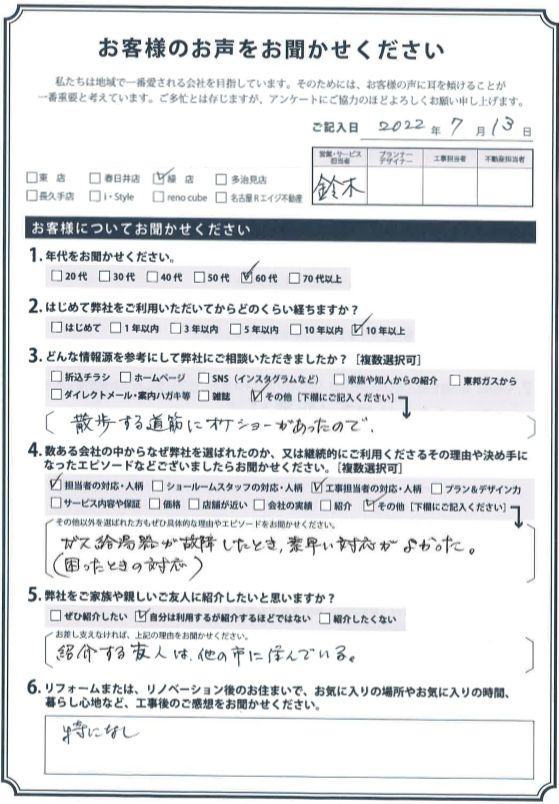 お客様のお声をお聞かせください
私たちは地域で一番愛される会社を目指しています。そのためには、お客様の声に耳を傾けることが
一番重要と考えています。ご多忙とは存じますが、アンケートにご協力のほどよろしくお願い申し上げます。
ご記入日 2022 年 7 月 13 日
営業・サービス担当者 プランナーデザイナー 工事担当者 不動産担当者
鈴木
□東 店 □春日井店 ☑緑 店 □多治見店
□長久手店 □i・Style □reno cube □名古屋Rエイジ不動産
お客様についてお聞かせください
1. 年代をお聞かせください。
□20代 □30代 □40代 □50代 ☑60代 □70代以上
2. はじめて弊社をご利用いただいてからどのくらい経ちますか？
□はじめて □1年以内 □3年以内 □5年以内 □10年以内 ☑10年以上
3. どんな情報源を参考にして弊社にご相談いただきましたか？［複数選択可］
□折込チラシ □ホームページ □SNS（インスタグラムなど） □家族や知人からの紹介 □東邦ガスから
□ダイレクトメール・案内ハガキ等 □雑誌 ☑その他［下欄にご記入ください］
散歩する道筋にオケショーがあったので、
4. 数ある会社の中からなぜ弊社を選ばれたのか、又は継続的にご利用くださるその理由や決め手に
なったエピソードなどございましたらお聞かせください。［複数選択可］
☑担当者の対応・人柄 □ショールームスタッフの対応・人柄 ☑工事担当者の対応・人柄 □プラン&デザイン力
□サービス内容や保証 □価格 □店舗が近い □会社の実績 □紹介 ☑その他［下欄にご記入ください］
その他以外を選ばれた方もぜひ具体的な理由やエピソードをお聞かせください。
ガス給湯器が故障したとき、素早い対応がよかった。
（困ったときの対応）
5. 弊社をご家族や親しいご友人に紹介したいと思いますか？
□ぜひ紹介したい ☑自分は利用するが紹介するほどではない □紹介したくない
お差し支えなければ、上記の理由をお聞かせください。
紹介する友人は、他の市に住んでいる。
6. リフォームまたは、リノベーション後のお住まいで、お気に入りの場所やお気に入りの時間、
暮らし心地など、工事後のご感想をお聞かせください。
特になし